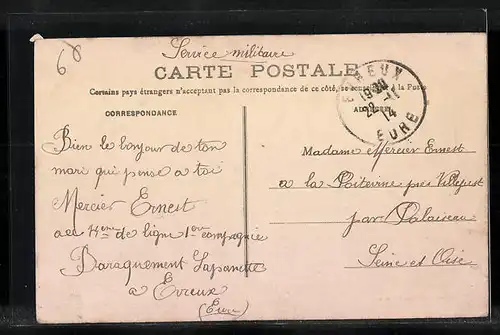 60
Service militaire
CARTE POSTALE
Certains pays étrangers n'acceptant pas la correspondance de ce côté, se à la Poste
CORRESPONDANCE
EVREUX
22 - 11
14
EURE
Bien le bonjour de ton
mari qui pense a toi
Mercier Ernest
au de ligne 1ere compagnie
Baraquement
a Evreux
(Eure)
Madame Mercier Ernest
a la Poitevine près Villejust
par Palaiseau
Seine et Oise